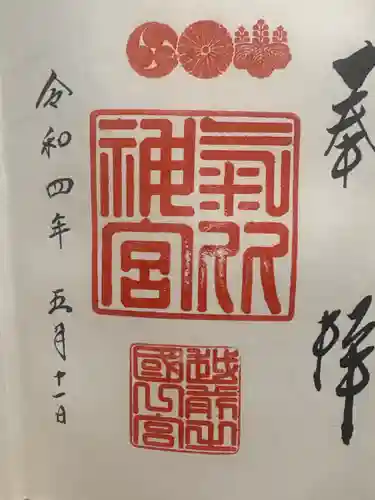 奉拝
氣比神宮
越前之國一宮
令和四年 五月十一日